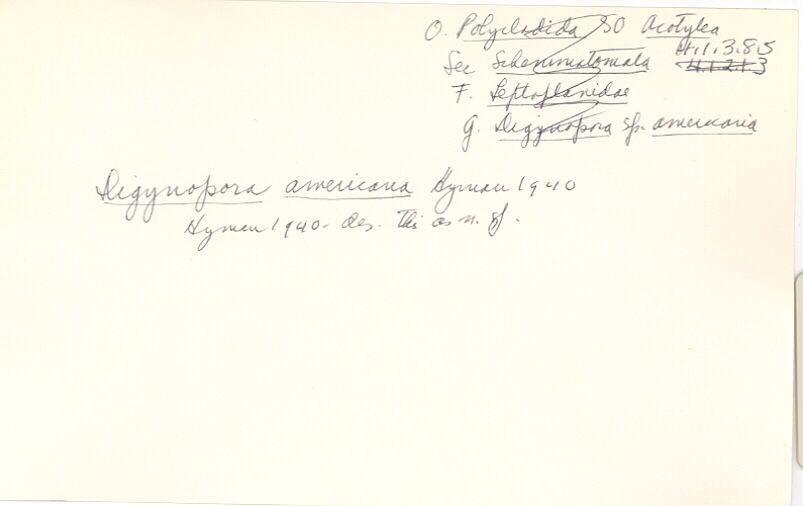 O. Polycladida SO Acotylea
4.1.3.8.5
Sec Schemmatomata 4.1.2.1.3
F. Leptoplanidae
g. Digynopora sp. americana
Digynopora americana Hyman 1940
Hyman 1940- des. this as n. sp.